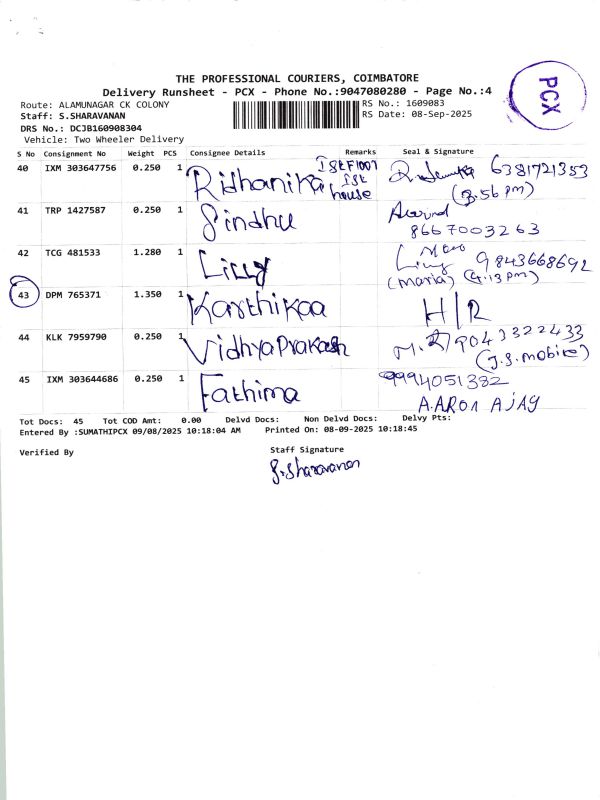 PCX
THE PROFESSIONAL COURIERS, COIMBATORE
Delivery Runsheet - PCX - Phone No.:9047080280 - Page No.:4
Route: ALAMUNAGAR CK COLONY
RS No.: 1609083
Staff: S.SHARAVANAN
RS Date: 08-Sep-2025
DRS No.: DCJB160908304
Vehicle: Two Wheeler Delivery
S No Consignment No Weight PCS Consignee Details Remarks Seal & Signature
40 IXM 303647756 0.250 1 Ridhanika Ist Floor Ist house 6381721353
(3.56 pm)
41 TRP 1427587 0.250 1 Sindhu
8667003263
42 TCG 481533 1.280 1 Lilly 9843668692
(maria) (4.13 pm)
43 DPM 765371 1.350 1 Karthikaa H/R
44 KLK 7959790 0.250 1 VidhyaPrakash 9043322433
(J.S. mobile)
45 IXM 303644686 0.250 1 Fathima 9994051382
A.ARON AJAY
Tot Docs: 45 Tot COD Amt: 0.00 Delvd Docs: Non Delvd Docs: Delvy Pts:
Entered By :SUMATHIPCX 09/08/2025 10:18:04 AM Printed On: 08-09-2025 10:18:45
Verified By
Staff Signature
S.Sharavanan